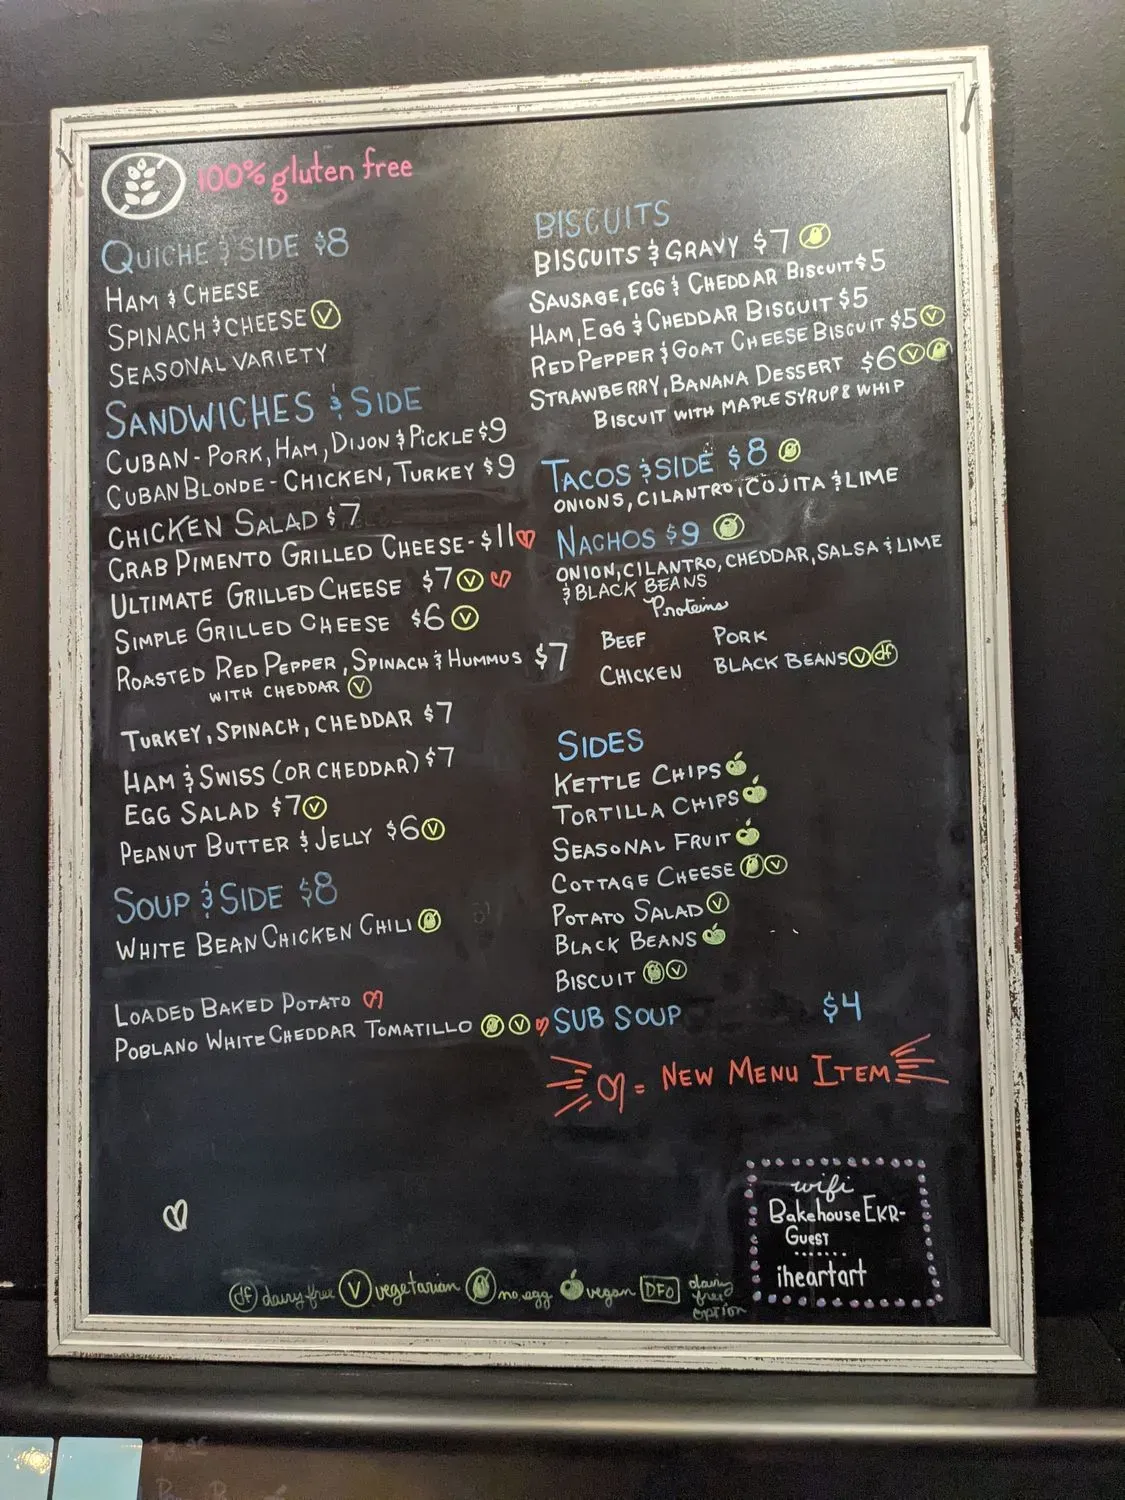 100% gluten free
QUICHE & SIDE $8
HAM & CHEESE
SPINACH & CHEESE V
SEASONAL VARIETY
SANDWICHES & SIDE
CUBAN - PORK, HAM, DIJON & PICKLE $9
CUBAN BLONDE - CHICKEN, TURKEY $9
CHICKEN SALAD $7
CRAB PIMENTO GRILLED CHEESE - $11
ULTIMATE GRILLED CHEESE $7 V
SIMPLE GRILLED CHEESE $6 V
ROASTED RED PEPPER, SPINACH & HUMMUS $7
WITH CHEDDAR V
TURKEY, SPINACH, CHEDDAR $7
HAM & SWISS (OR CHEDDAR) $7
EGG SALAD $7 V
PEANUT BUTTER & JELLY $6 V
SOUP & SIDE $8
WHITE BEAN CHICKEN CHILI
LOADED BAKED POTATO
POBLANO WHITE CHEDDAR TOMATILLO V
BISCUITS
BISCUITS & GRAVY $7
SAUSAGE, EGG & CHEDDAR BISCUIT $5
HAM, EGG & CHEDDAR BISCUIT $5
RED PEPPER & GOAT CHEESE BISCUIT $5 V
STRAWBERRY, BANANA DESSERT $6 V
BISCUIT WITH MAPLE SYRUP & WHIP
TACOS & SIDE $8
ONIONS, CILANTRO, COJITA & LIME
NACHOS $9
ONION, CILANTRO, CHEDDAR, SALSA & LIME
& BLACK BEANS
Proteins
BEEF PORK
CHICKEN BLACK BEANS V df
SIDES
KETTLE CHIPS
TORTILLA CHIPS
SEASONAL FRUIT
COTTAGE CHEESE V
POTATO SALAD V
BLACK BEANS
BISCUIT V
SUB SOUP $4
= NEW MENU ITEM
wifi
Bakehouse EKR-
Guest
iheartart
df dairy free V vegetarian no egg vegan DFO dairy
free
option